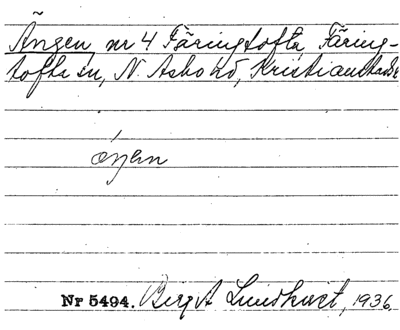 Ängen, nr 4 Färingtofta, Färing-
tofta sn, N. Åsbo hd, Kristianstads
ǫ́ŋen
Nr 5494. Berg A Lindkvist, 1936